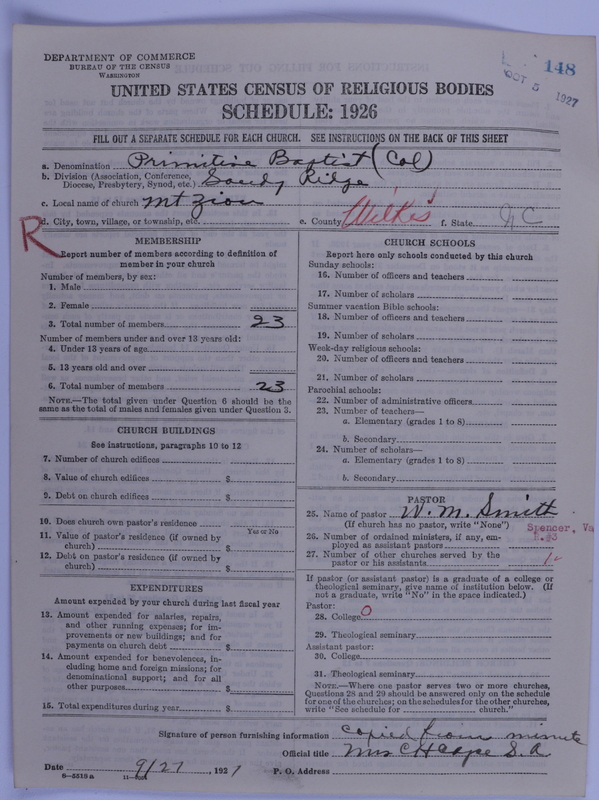 DEPARTMENT OF COMMERCE
BUREAU OF THE CENSUS
WASHINGTON
148
OCT 5 1927
UNITED STATES CENSUS OF RELIGIOUS BODIES
SCHEDULE: 1926
FILL OUT A SEPARATE SCHEDULE FOR EACH CHURCH. SEE INSTRUCTIONS ON THE BACK OF THIS SHEET
a. Denomination Primitive Baptist (Col)
b. Division (Association, Conference,
Diocese, Presbytery, Synod, etc.) Sandy Ridge
c. Local name of church Mt Zion
d. City, town, village, or township, etc. e. County Wilkes f. State N C
R
MEMBERSHIP
Report number of members according to definition of
member in your church
Number of members, by sex:
1. Male
2. Female
3. Total number of members 23
Number of members under and over 13 years old:
4. Under 13 years of age
5. 13 years old and over
6. Total number of members 23
NOTE.—The total given under Question 6 should be the
same as the total of males and females given under Question 3.
CHURCH BUILDINGS
See instructions, paragraphs 10 to 12
7. Number of church edifices
8. Value of church edifices $
9. Debt on church edifices $
10. Does church own pastor's residence
Yes or No
11. Value of pastor's residence (if owned by
church) $
12. Debt on pastor's residence (if owned by
church) $
EXPENDITURES
Amount expended by your church during last fiscal year
13. Amount expended for salaries, repairs,
and other running expenses; for im-
provements or new buildings; and for
payments on church debt $
14. Amount expended for benevolences, in-
cluding home and foreign missions; for
denominational support; and for all
other purposes $
15. Total expenditures during year $
CHURCH SCHOOLS
Report here only schools conducted by this church
Sunday schools:
16. Number of officers and teachers
17. Number of scholars
Summer vacation Bible schools:
18. Number of officers and teachers
19. Number of scholars
Week-day religious schools:
20. Number of officers and teachers
21. Number of scholars
Parochial schools:
22. Number of administrative officers
23. Number of teachers—
a. Elementary (grades 1 to 8)
b. Secondary
24. Number of scholars—
a. Elementary (grades 1 to 8)
b. Secondary
PASTOR
25. Name of pastor W. M. Smith
(If church has no pastor, write "None") Spencer, Va
26. Number of ordained ministers, if any, em-
ployed as assistant pastors R.#3
27. Number of other churches served by the
pastor or his assistants 1
If pastor (or assistant pastor) is a graduate of a college or
theological seminary, give name of institution below. (If
not a graduate, write "No" in the space indicated.)
Pastor:
28. College O
29. Theological seminary
Assistant pastor:
30. College
31. Theological seminary
NOTE.—Where one pastor serves two or more churches,
Questions 28 and 29 should be answered only on the schedule
for one of the churches; on the schedules for the other churches,
write "See schedule for church."
Signature of person furnishing information copied from minute
Official title Mrs C H Cape S. A.
Date 9/27, 1927 P. O. Address
8-5518a